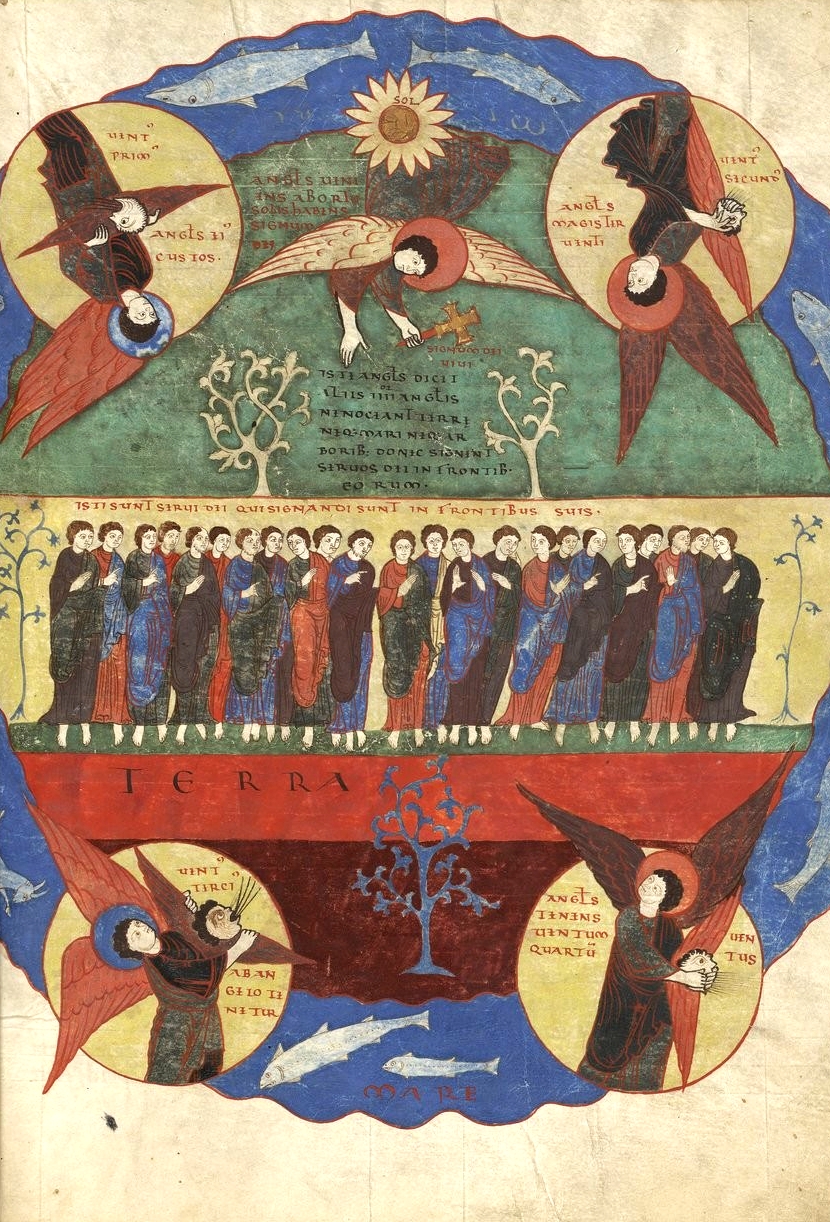 SOL
UINT
PRIM
ANGLS
CUSTOS·
ANGLS UINI
INS ABORTU
SOLIS HABINS
SIGNUM
DEI
UINT
SICUND
ANGLS
MAGISTIR
UINTI
SIGNUM DII
UIUI
ISTI ANGLS DICIT
ILLIS IIII ANGLIS
NI NOCIANT TIRRE
NIQ· MARI NIQ· AR
BORIB; DONIC SIGNINT
SIRUOS DII IN FRONTIB·
EORUM·
ISTI SUNT SIRUI DII QUI SIGNANDI SUNT IN FRONTIBUS SUIS·
TERRA
UINT
TIRCI
ABAN
GILO TI
NITUR
ANGLS
TININS
UINTUM
QUARTU
UEN
TUS
MARE